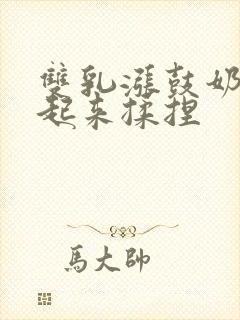 雙乳漲鼓奶
起来揉捏
馬大帥